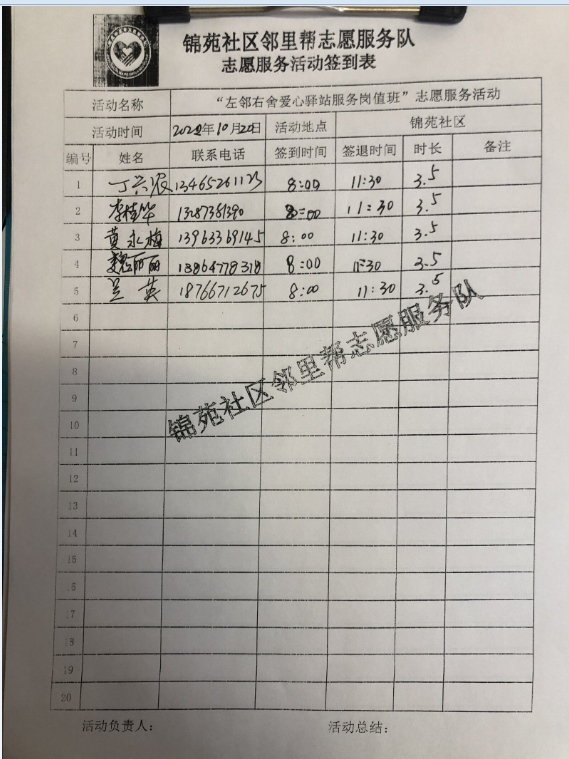 锦苑社区邻里帮志愿服务队
志愿服务活动签到表
活动名称 “左邻右舍爱心驿站服务岗值班”志愿服务活动
活动时间 年10月20日 活动地点 锦苑社区
编号 姓名 联系电话 签到时间 签退时间 时长 备注
1 丁兴汉 13465261123 8:00 11:30 3.5
2 李桂华 13287381390 8:00 11:30 3.5
3 黄永梅 13963369145 8:00 11:30 3.5
4 丽丽 13864778318 8:00 11:30 3.5
5 英 18766712675 8:00 11:30 3.5
6
7
8
9
10
11
12
13
14
15
16
17
18
19
20
锦苑社区邻里帮志愿服务队
活动负责人： 活动总结：